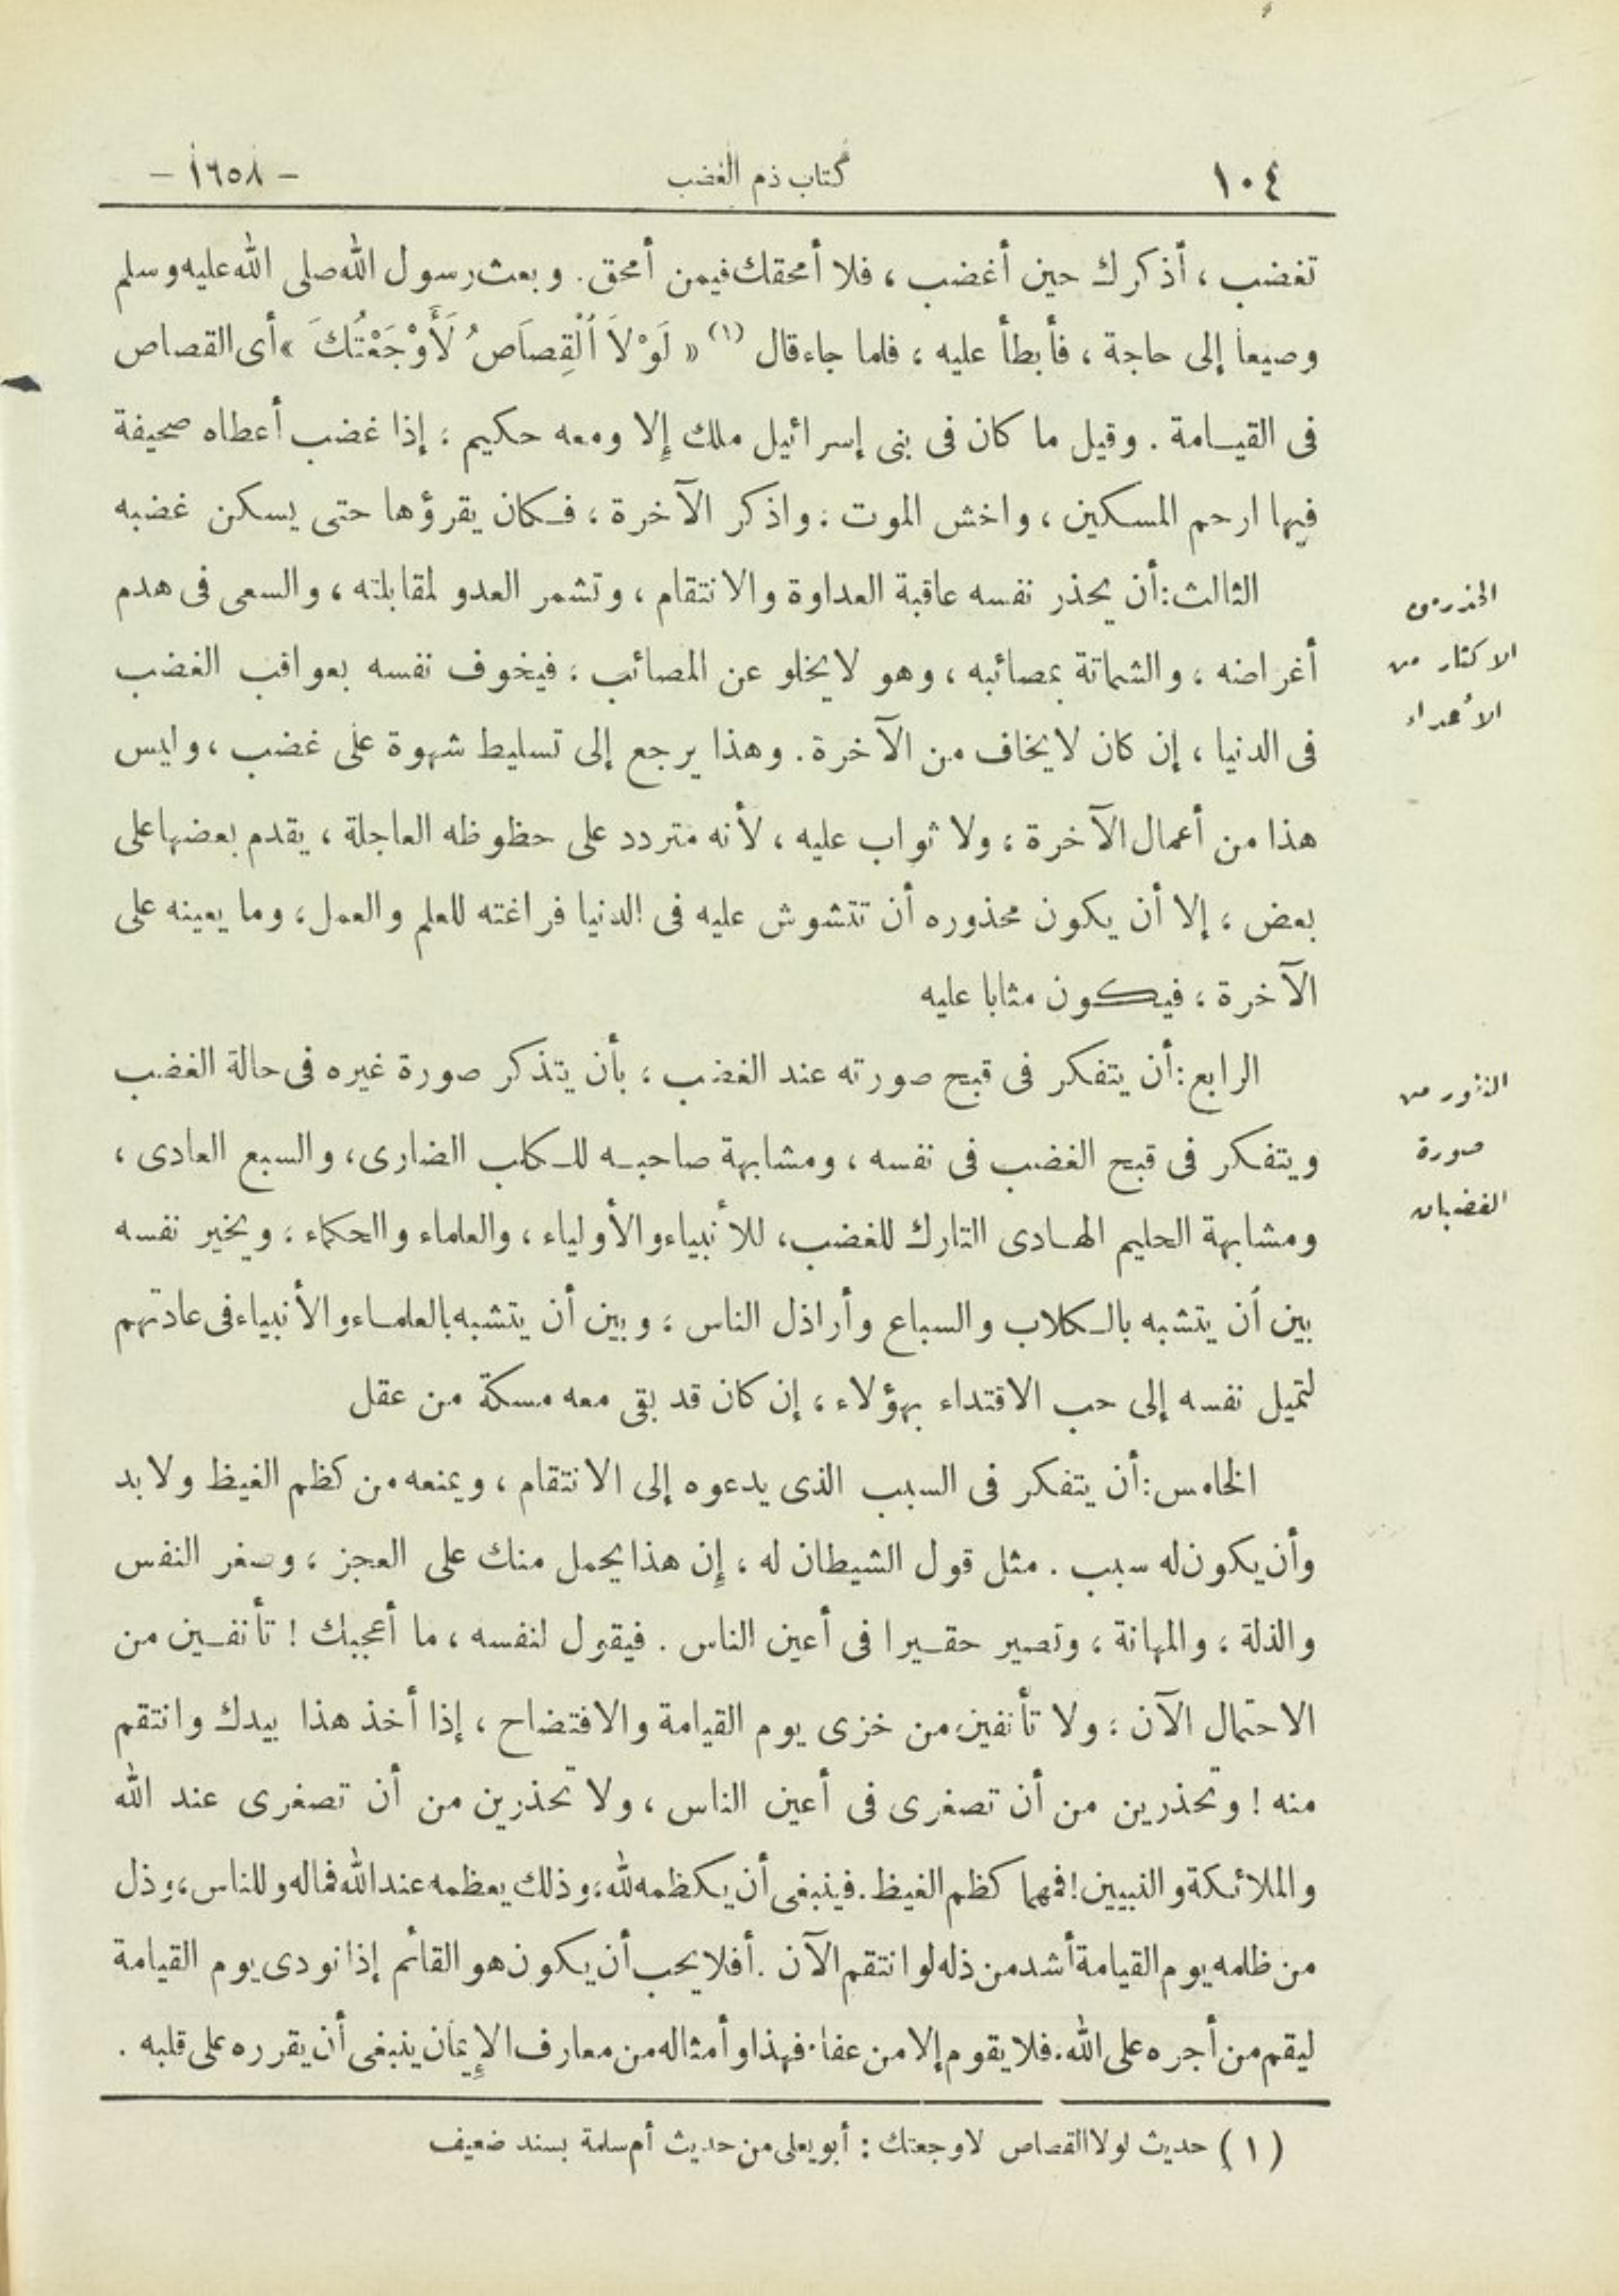 ١٠٤ كتاب ذم الغضب - ١٦٥٨ -
تغضب ، أذكرك حين أغضب ، فلا أمحقك فيمن أمحق . وبعث رسول الله صلى الله عليه وسلم
وصيفا إلى حاجة ، فأبطأ عليه ، فلما جاء قال (١) « لَوْلاَ اَلْقِصَاصُ لَأَوْجَعْتُكَ » أى القصاص
فى القيامة . وقيل ما كان فى بنى إسرائيل ملك إلا ومعه حكيم ، إذا غضب أعطاه صحيفة
فيها ارحم المسكين ، واخش الموت ، واذكر الآخرة ، فكان يقرؤها حتى يسكن غضبه
الثالث : أن يحذر نفسه عاقبة العداوة والانتقام ، وتشمر العدو لمقابلته ، والسعى فى هدم
أغراضه ، والشماتة بمصائبه ، وهو لا يخلو عن المصائب ، فيخوف نفسه بعواقب الغضب
فى الدنيا ، إن كان لا يخاف من الآخرة . وهذا يرجع إلى تسليط شهوة على غضب ، وليس
هذا من أعمال الآخرة ، ولا ثواب عليه ، لأنه متردد على حظوظه العاجلة ، يقدم بعضها على
بعض ، إلا أن يكون محذوره أن تتشوش عليه فى الدنيا فراغته للعلم والعمل ، وما يعينه على
الآخرة ، فيكون مثابا عليه
الرابع : أن يتفكر فى قبح صورته عند الغضب ، بأن يتذكر صورة غيره فى حالة الغضب
ويتفكر فى قبح الغضب فى نفسه ، ومشابهة صاحبه للكلب الضارى ، والسبع العادى ،
ومشابهة الحليم الهادى التارك للغضب ، للأنبياء والأولياء ، والعلماء والحكماء ، ويخير نفسه
بين أن يتشبه بالكلاب والسباع وأراذل الناس ، وبين أن يتشبه بالعلماء والأنبياء فى عادتهم
لتميل نفسه إلى حب الاقتداء بهؤلاء ، إن كان قد بقى معه مسكة من عقل
الخامس : أن يتفكر فى السبب الذى يدعوه إلى الانتقام ، ويمنعه من كظم الغيظ ولا بد
وأن يكون له سبب . مثل قول الشيطان له ، إن هذا يحمل منك على العجز ، وصغر النفس
والذلة ، والمهانة ، وتصير حقيرا فى أعين الناس . فيقول لنفسه ، ما أعجبك ! تأنفين من
الاحتمال الآن ، ولا تأنفين من خزى يوم القيامة والافتضاح ، إذا أخذ هذا بيدك وانتقم
منه ! وتحذرين من أن تصغرى فى أعين الناس ، ولا تحذرين من أن تصغرى عند الله
والملائكة والنبيين ! فمهما كظم الغيظ . فينبغى أن يكظمه لله ، وذلك يعظمه عند الله فماله وللناس ، وذل
من ظلمه يوم القيامة أشد من ذله لو انتقم الآن . أفلا يحب أن يكون هو القائم إذا نودى يوم القيامة
ليقم من أجره على الله . فلا يقوم إلا من عفا . فهذا وأمثاله من معارف الإيمان ينبغى أن يقرره على قلبه .
الحذر من
الاكثار من
الأعداء
النفور من
صورة
الغضبان
(١) حديث لولا القصاص لاوجعتك : أبو يعلى من حديث أم سلمة بسند ضعيف